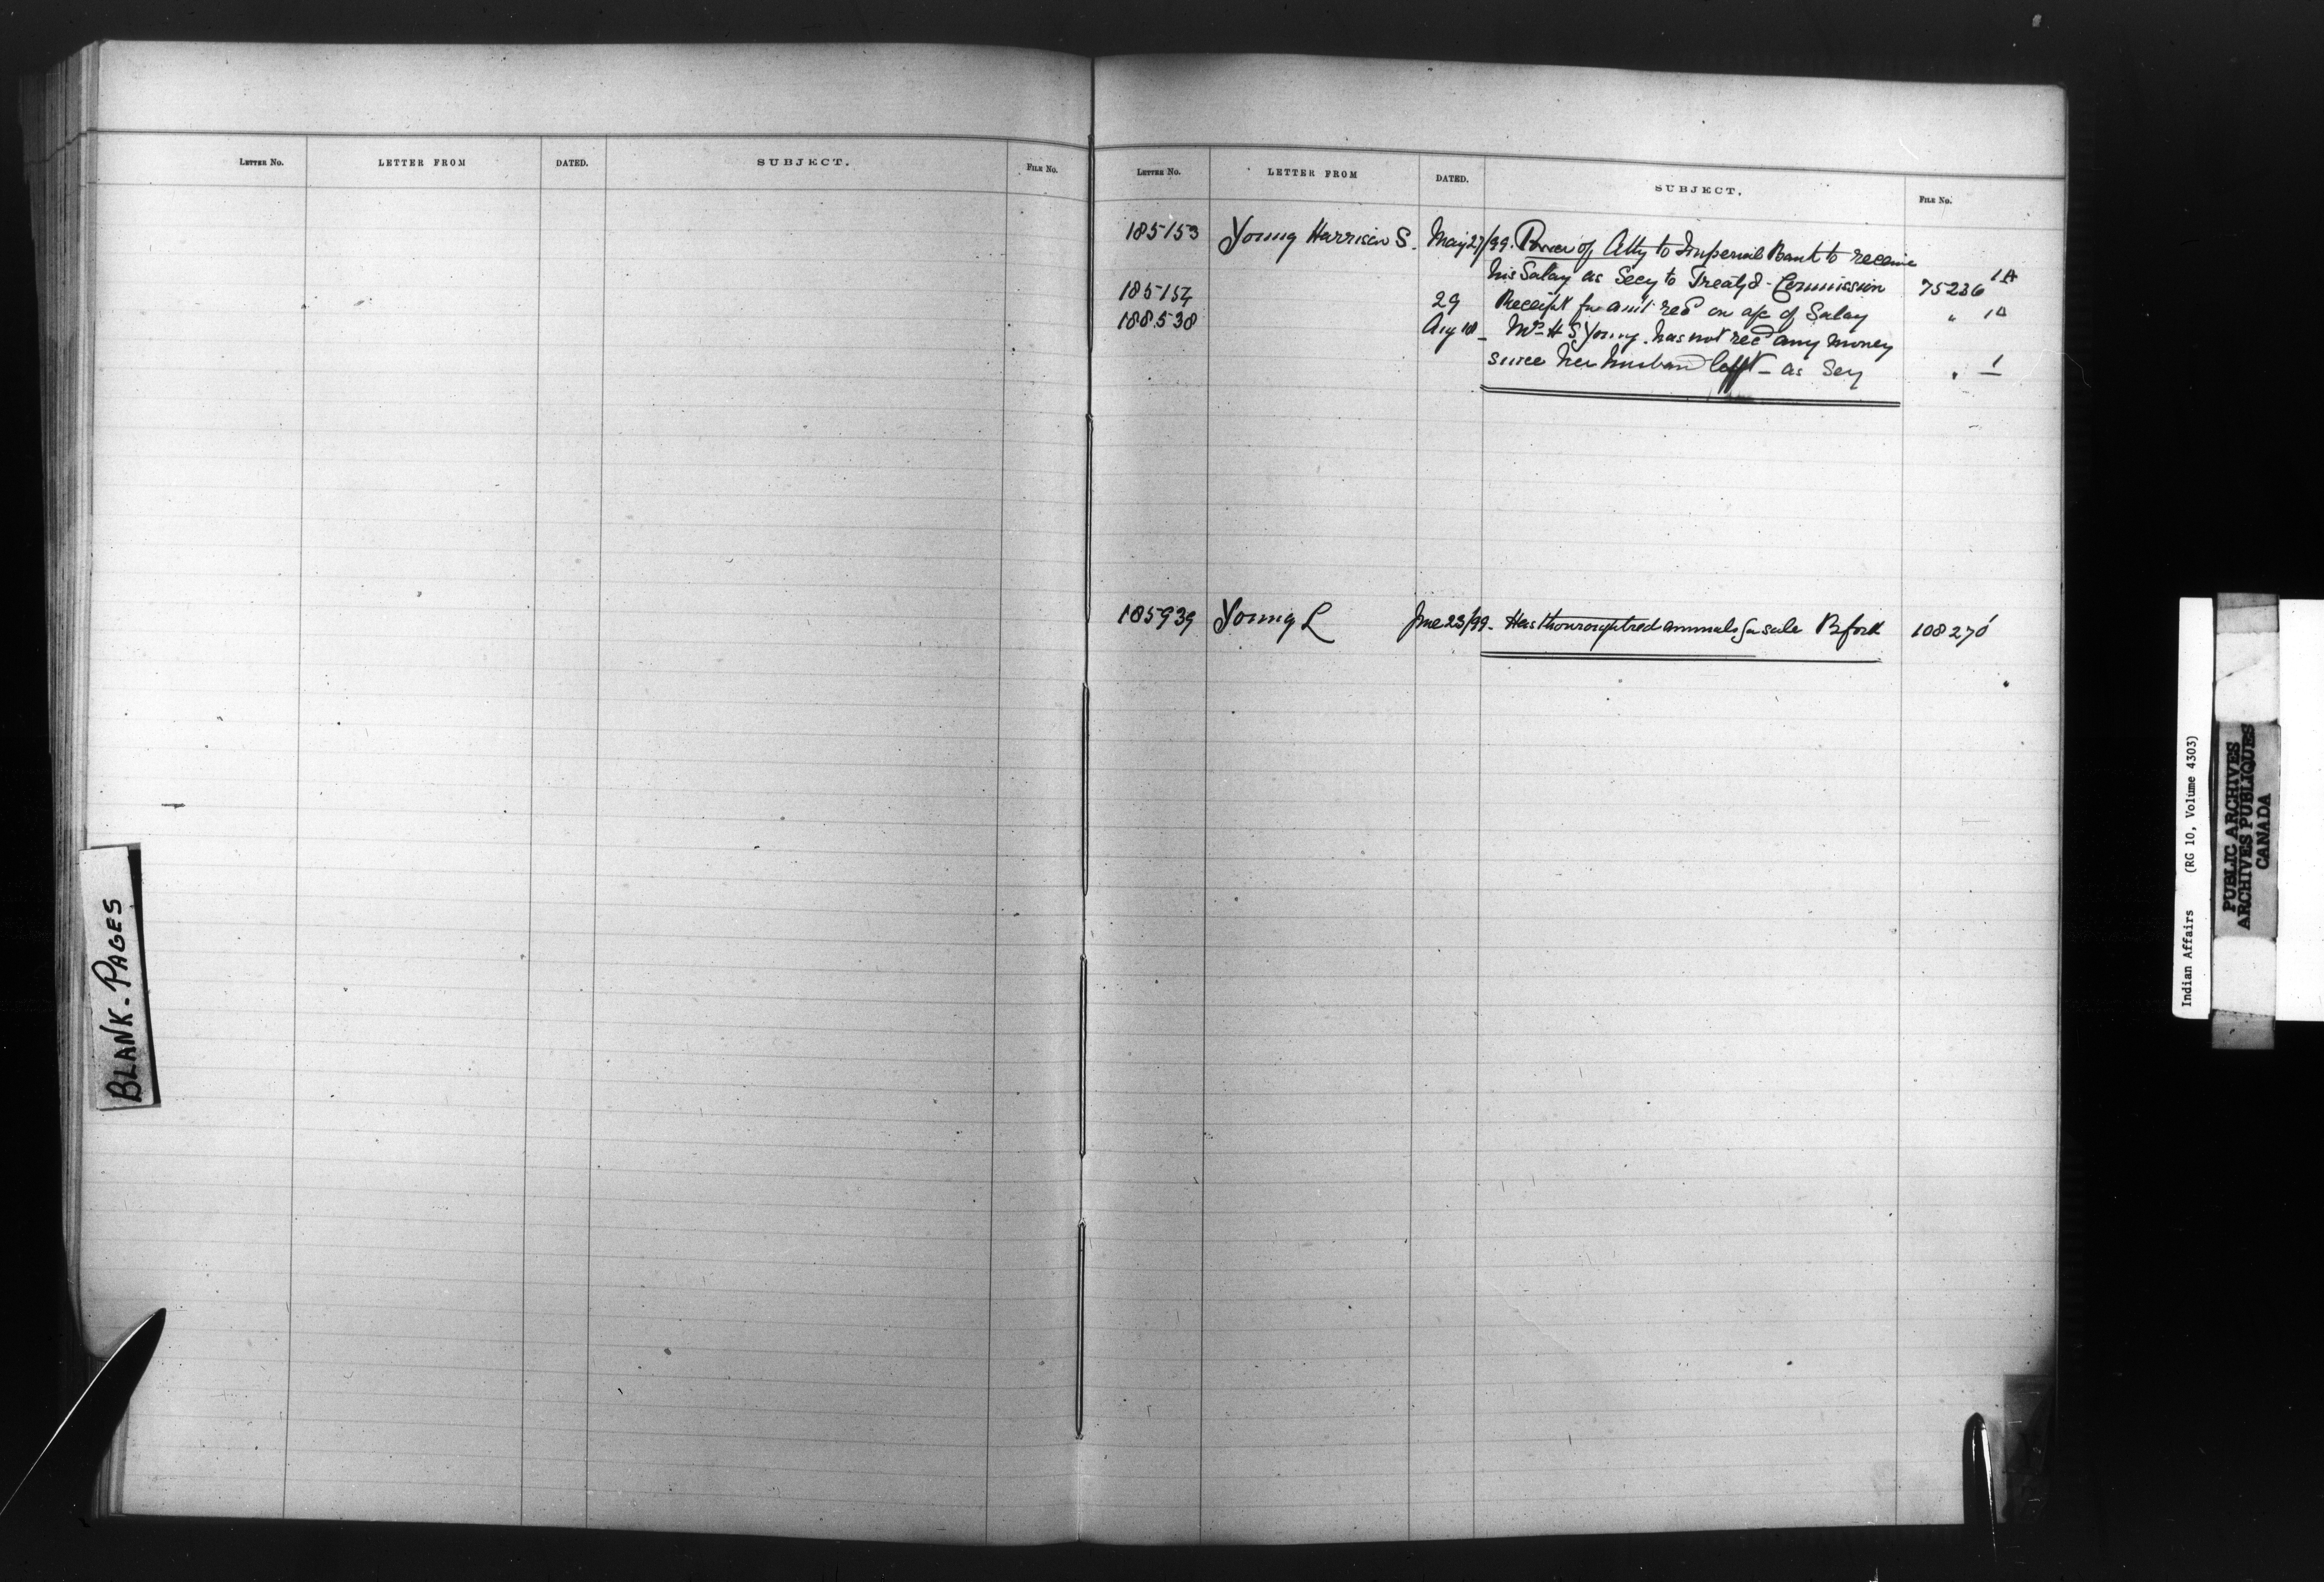 LETTER No. LETTER FROM DATED. SUBJECT. FILE No.
BLANK-PAGES
LETTER No. LETTER FROM DATED. SUBJECT. FILE No.
185153 Young Harrison S. May 27/99. Power of Atty to Imperial Bank to receive
his Salary as Secy to Treaty 8 - Commission 75236 1A
185154 29 Receipt for amt recd on a/c of Salary " 1A
188538 Aug 18 - Mrs H S Young. has not recd any money
since her husband left - as Secy " 1
185939 Young L June 23/99 - Has thoroughbred animals for sale B ford 108270
Indian Affairs (RG 10, Volume 4303)
PUBLIC ARCHIVES
ARCHIVES PUBLIQUES
CANADA